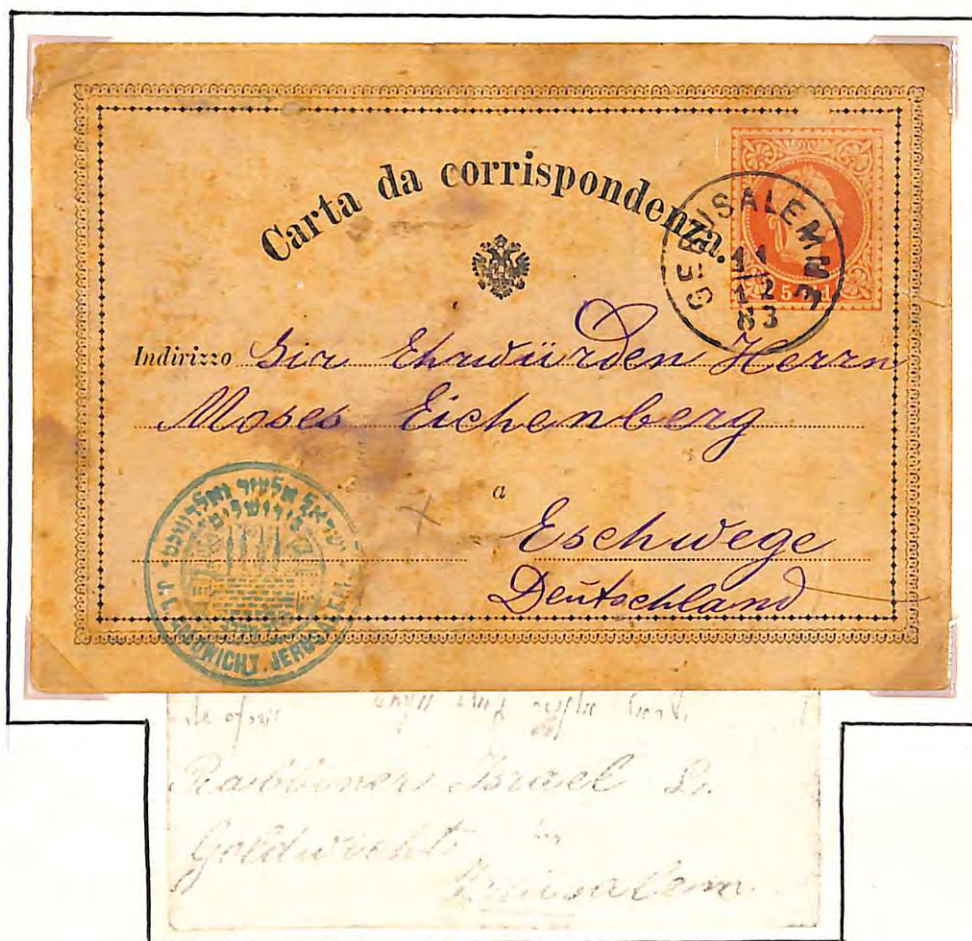 Carta da corrispondenza.
GERUSALEMME
11
12
83
5 sld
Indirizzo Sir Ehrwürden Herrn
Moses Eichenberg
a
Eschwege
Deutschland
ישראל אלעזר
בירושלים
I. L. GOLDWICHT. JERUSALEM
Rabbiner Israel L.
Goldwicht in
Jerusalem